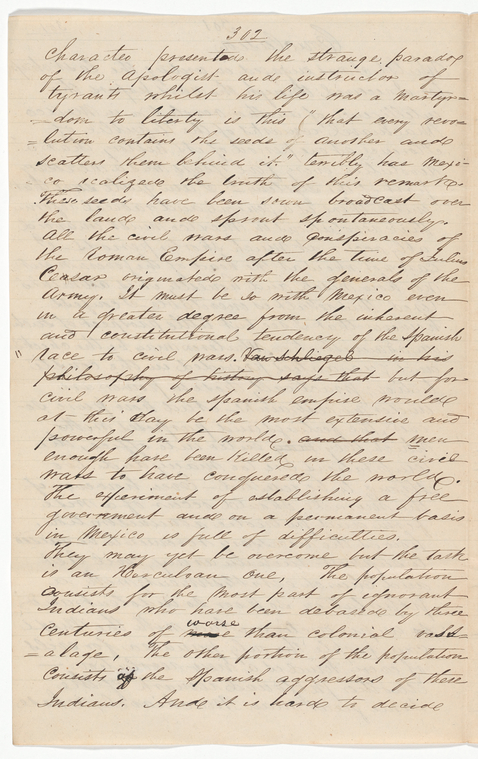 302
character presented the strange paradox
of the Apologist and instructor of
tyrants whilst his life was a martyr=
=dom to liberty is this ("that every revo=
=lution contains the seeds of another and
scatters them behind it." terribly has Mexi=
=co realized the truth of this remark.
These seeds have been sown broadcast over
the land and sprout spontaneously.
All the civil wars and Conspiracies of
the Roman Empire after the time of Julius
Ceasar originated with the generals of the
Army. It must be so with Mexico even
in a greater degree from the inherent
and constitutional tendency of the Spanish
" race to civil wars. Van Schliegel in his
philosophy of history says that but for
civil wars the Spanish empire would
at this day be the most extensive and
powerful in the world. and that men
enough have been killed in these civil
wars to have conquered the world.
The experiment of establishing a free
government and on a permanent basis
in Mexico is full of difficulties.
They may yet be overcome but the task
is an Herculean one. The population
consists for the most part of ignorant
Indians who have been debased by three
Centuries of worse than colonial vass=
=alage. The other portion of the population
Consists of the Spanish aggressors of these
Indians. And it is hard to decide